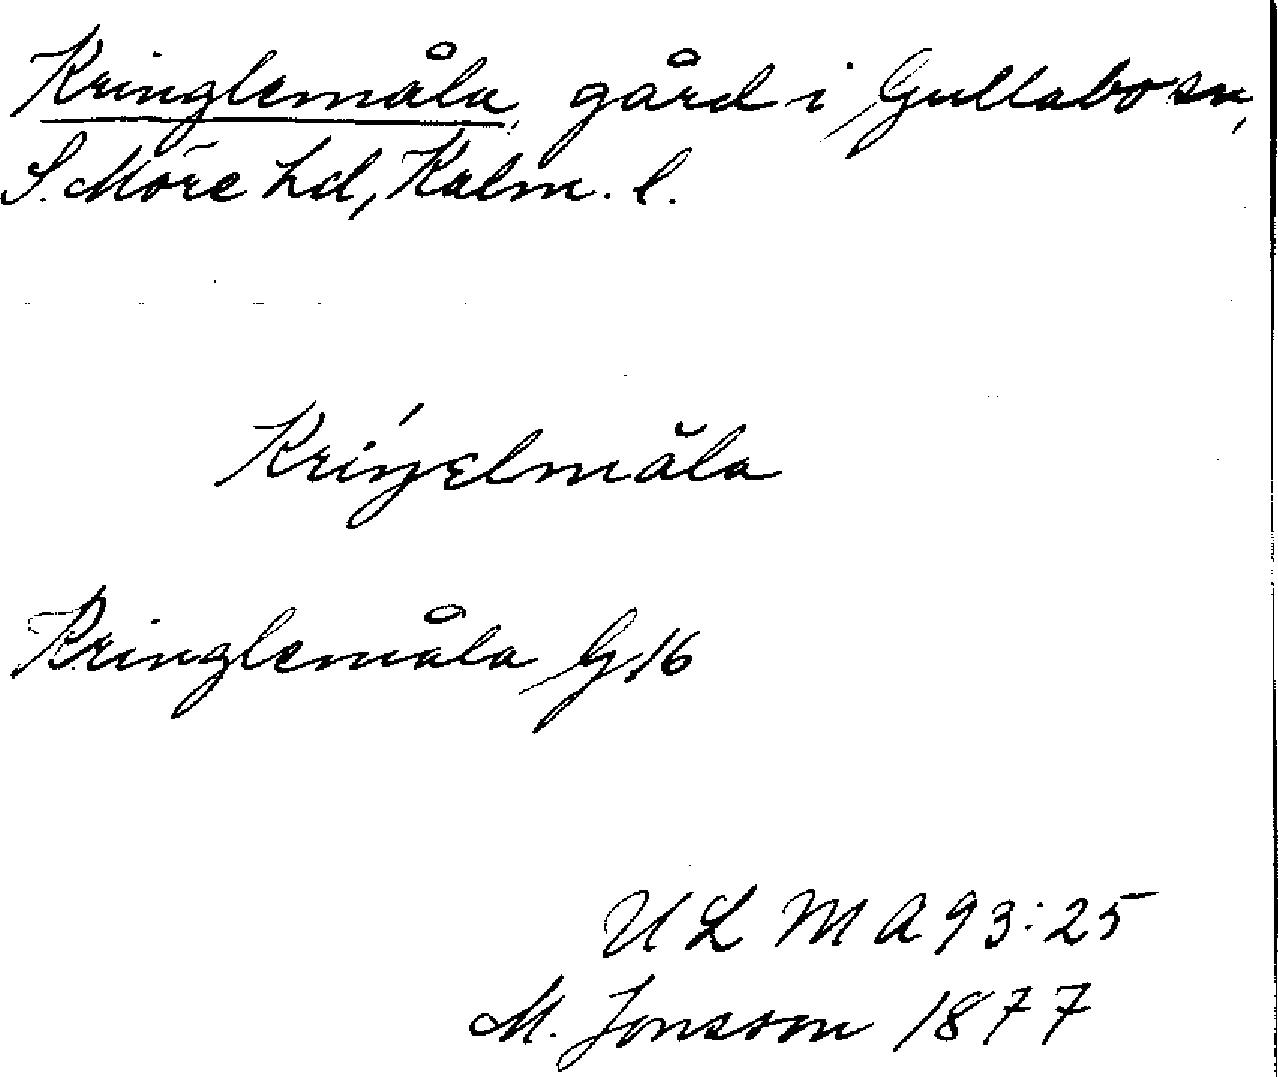 Kringlemåla, gård i Gullabo sn,
S. Möre hd, Kalm. l.
Kríŋelmăla
Kringlemåla G 16
ULMA 93:25
M. Jonsson 1877